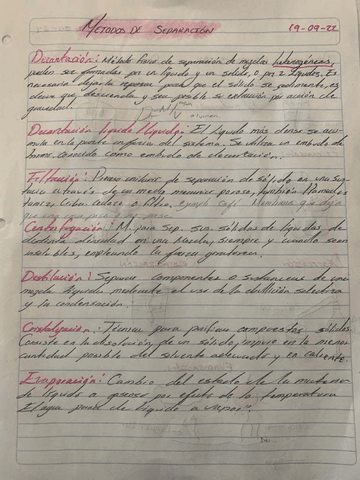 METODOS DE SEPARACION 19-09-22
Decantación: Método físico de separación de mezclas heterogéneas,
pueden ser formadas por un líquido y un sólido, o por 2 líquidos. Es
necesario dejarla reposar para que el sólido se sedimente, es
decir que descienda y sea posible su extracción por acción de
gravedad.
Decantación líquido/líquido: El líquido más denso se acu-
mula en la parte inferior del sistema. Se utiliza un embudo de
conocido como embudo de decantación.
Filtración: Proceso unitario de separación de sólidos en una
a través de un medio mecánico poroso, también llamado
tamiz, criba, cedazo o filtro.
Centrifugación: M. para sep. sólidos de líquidos, de
distinta densidad en una mezcla, siempre y cuando sean
insolubles, empleando la fuerza
Destilación: Separar componentes o sustancias de una
mezcla líquida mediante el uso de la ebullición selectiva
y la condensación.
Cristalización: Técnica para purificar compuestos sólidos.
Consiste en la disolución de un sólido impuro en la menor
cantidad posible del solvente adecuado y en caliente.
Evaporación: Cambio del estado de la materia
de líquido a gaseoso por efecto de la temperatura
El agua pasa de líquido a vapor.